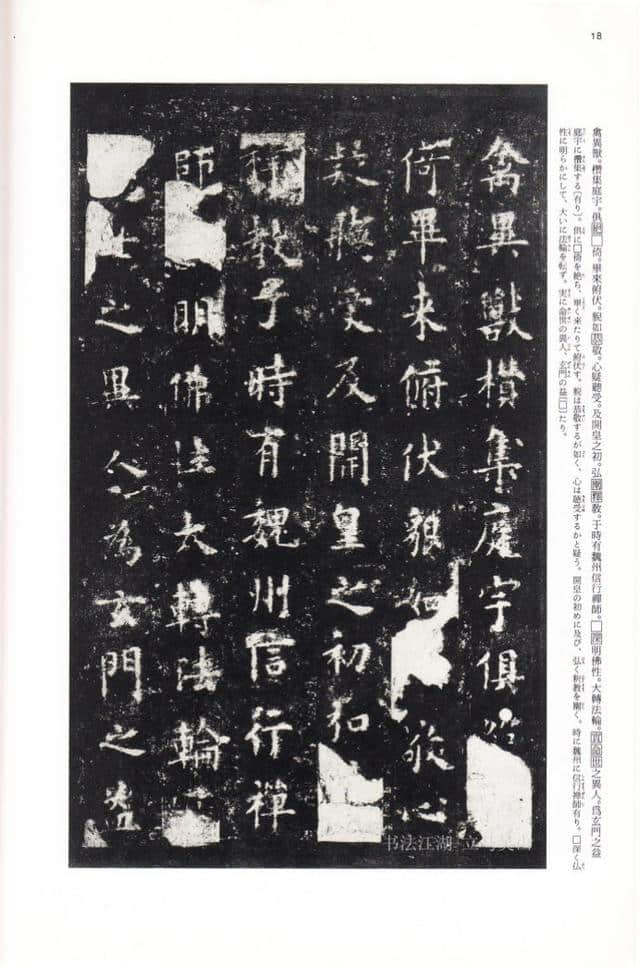 18
禽異獸。欑集庭宇。俱絕□倚。畢來俯伏。貌如恭敬。心疑聽受。及開皇之初。弘闡釋敎。于時有魏州信行禪師。□深明佛性。大轉法輪。實命世之異人。爲玄門之益
庭宇に欑集する〔有り〕。俱に□倚を絶ち、畢く来たりて俯伏す。貌は恭敬するが如く、心は聴受するかと疑う。開皇の初めに及び、弘く釈教を闡く。時に魏州に信行禅師有り。□深く仏
性に明らかにして、大いに法輪を転ず。実に命世の異人、玄門の益〔□〕たり。
禽異獸欑集庭宇俱絕
倚畢来俯伏貌如敬心
疑聽受及開皇之初弘
釋教于時有魏州信行禪
師明佛性大轉法輪
世之異人為玄門之益
书法江湖